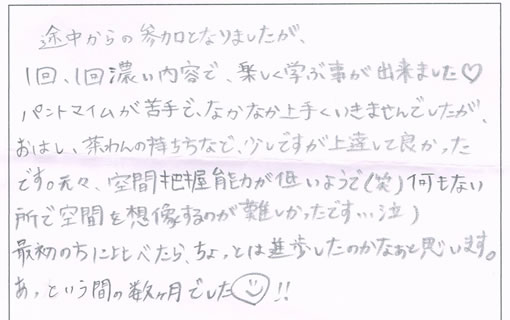 途中からの参加となりましたが、
1回、1回濃い内容で、楽しく学ぶ事が出来ました♡
パントマイムが苦手で、なかなか上手くいきませんでしたが、
おはし、茶わんの持ちちなど、少しですが上達して良かった
です。元々、空間把握能力が低いようで(笑)何もない
所で空間を想像するのが難しかったです…泣)
最初の方に比べたら、ちょっとは進歩したのかなぁと思います。
あっという間の数ヶ月でした☺!!